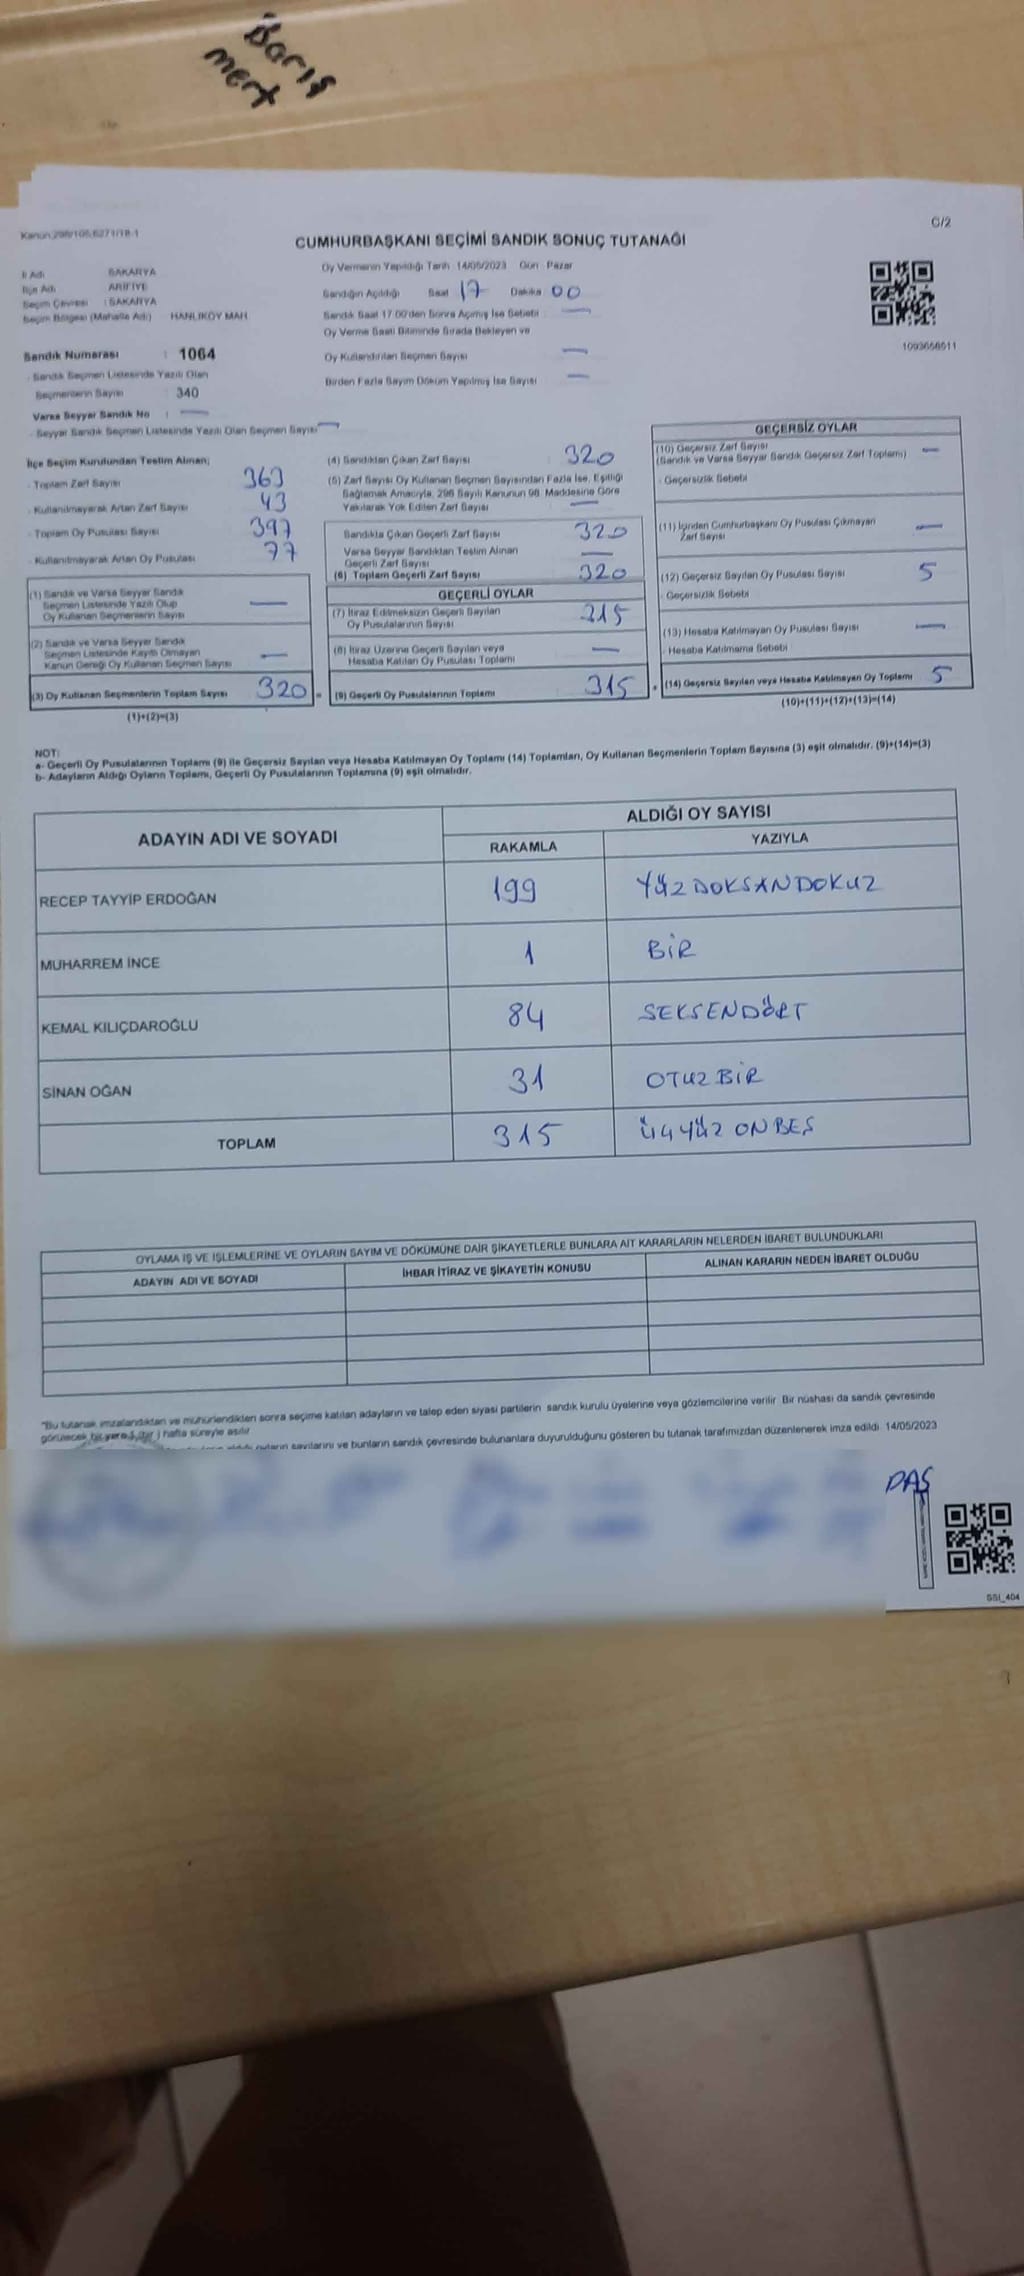 Barış
mert
C/2
Kanun:298/105,6271/18-1
CUMHURBAŞKANI SEÇİMİ SANDIK SONUÇ TUTANAĞI
İl Adı : SAKARYA
İlçe Adı : ARİFİYE
Seçim Çevresi : SAKARYA
Seçim Bölgesi (Mahalle Adı) : HANLIKÖY MAH.
Oy Vermenin Yapıldığı Tarih 14/05/2023 Gün Pazar
Sandığın Açıldığı Saat 17 Dakika 00
Sandık Saat 17.00'den Sonra Açılmış İse Sebebi : —
Oy Verme Saati Bitiminde Sırada Bekleyen ve
Oy Kullandırılan Seçmen Sayısı —
Birden Fazla Sayım Döküm Yapılmış İse Sayısı —
1093656511
Sandık Numarası : 1064
- Sandık Seçmen Listesinde Yazılı Olan
Seçmenlerin Sayısı : 340
Varsa Seyyar Sandık No : —
- Seyyar Sandık Seçmen Listesinde Yazılı Olan Seçmen Sayısı —
İlçe Seçim Kurulundan Teslim Alınan;
- Toplam Zarf Sayısı 363
- Kullanılmayarak Artan Zarf Sayısı 43
- Toplam Oy Pusulası Sayısı 397
- Kullanılmayarak Artan Oy Pusulası 77
(1) Sandık ve Varsa Seyyar Sandık
Seçmen Listesinde Yazılı Olup
Oy Kullanan Seçmenlerin Sayısı —
(2) Sandık ve Varsa Seyyar Sandık
Seçmen Listesinde Kayıtlı Olmayan
Kanun Gereği Oy Kullanan Seçmen Sayısı —
(3) Oy Kullanan Seçmenlerin Toplam Sayısı 320 =
(1)+(2)=(3)
(4) Sandıktan Çıkan Zarf Sayısı : 320
(5) Zarf Sayısı Oy Kullanan Seçmen Sayısından Fazla İse, Eşitliği
Sağlamak Amacıyla, 298 Sayılı Kanunun 98. Maddesine Göre
Yakılarak Yok Edilen Zarf Sayısı —
Sandıkta Çıkan Geçerli Zarf Sayısı 320
Varsa Seyyar Sandıktan Teslim Alınan
Geçerli Zarf Sayısı —
(6) Toplam Geçerli Zarf Sayısı 320
GEÇERLİ OYLAR
(7) İtiraz Edilmeksizin Geçerli Sayılan
Oy Pusulalarının Sayısı 315
(8) İtiraz Üzerine Geçerli Sayılan veya
Hesaba Katılan Oy Pusulası Toplamı —
(9) Geçerli Oy Pusulalarının Toplamı 315 +
GEÇERSİZ OYLAR
(10) Geçersiz Zarf Sayısı
(Sandık ve Varsa Seyyar Sandık Geçersiz Zarf Toplamı) —
- Geçersizlik Sebebi
(11) İçinden Cumhurbaşkanı Oy Pusulası Çıkmayan
Zarf Sayısı —
(12) Geçersiz Sayılan Oy Pusulası Sayısı 5
- Geçersizlik Sebebi
(13) Hesaba Katılmayan Oy Pusulası Sayısı —
- Hesaba Katılmama Sebebi
(14) Geçersiz Sayılan veya Hesaba Katılmayan Oy Toplamı 5
(10)+(11)+(12)+(13)=(14)
NOT:
a- Geçerli Oy Pusulalarının Toplamı (9) ile Geçersiz Sayılan veya Hesaba Katılmayan Oy Toplamı (14) Toplamları, Oy Kullanan Seçmenlerin Toplam Sayısına (3) eşit olmalıdır. (9)+(14)=(3)
b- Adayların Aldığı Oyların Toplamı, Geçerli Oy Pusulalarının Toplamına (9) eşit olmalıdır.
ADAYIN ADI VE SOYADI
ALDIĞI OY SAYISI
RAKAMLA YAZIYLA
RECEP TAYYİP ERDOĞAN 199 YÜZ DOKSAN DOKUZ
MUHARREM İNCE 1 BİR
KEMAL KILIÇDAROĞLU 84 SEKSENDÖRT
SİNAN OĞAN 31 OTUZ BİR
TOPLAM 315 ÜÇYÜZ ONBEŞ
OYLAMA İŞ VE İŞLEMLERİNE VE OYLARIN SAYIM VE DÖKÜMÜNE DAİR ŞİKAYETLERLE BUNLARA AİT KARARLARIN NELERDEN İBARET BULUNDUKLARI
ADAYIN ADI VE SOYADI İHBAR İTİRAZ VE ŞİKAYETİN KONUSU ALINAN KARARIN NEDEN İBARET OLDUĞU
"Bu tutanak imzalandıktan ve mühürlendikten sonra seçime katılan adayların ve talep eden siyasi partilerin sandık kurulu üyelerine veya gözlemcilerine verilir. Bir nüshası da sandık çevresinde
görülecek bir yere 1 (bir) hafta süreyle asılır.
aldığı oyların sayılarını ve bunların sandık çevresinde bulunanlara duyurulduğunu gösteren bu tutanak tarafımızdan düzenlenerek imza edildi. 14/05/2023
SSI_404